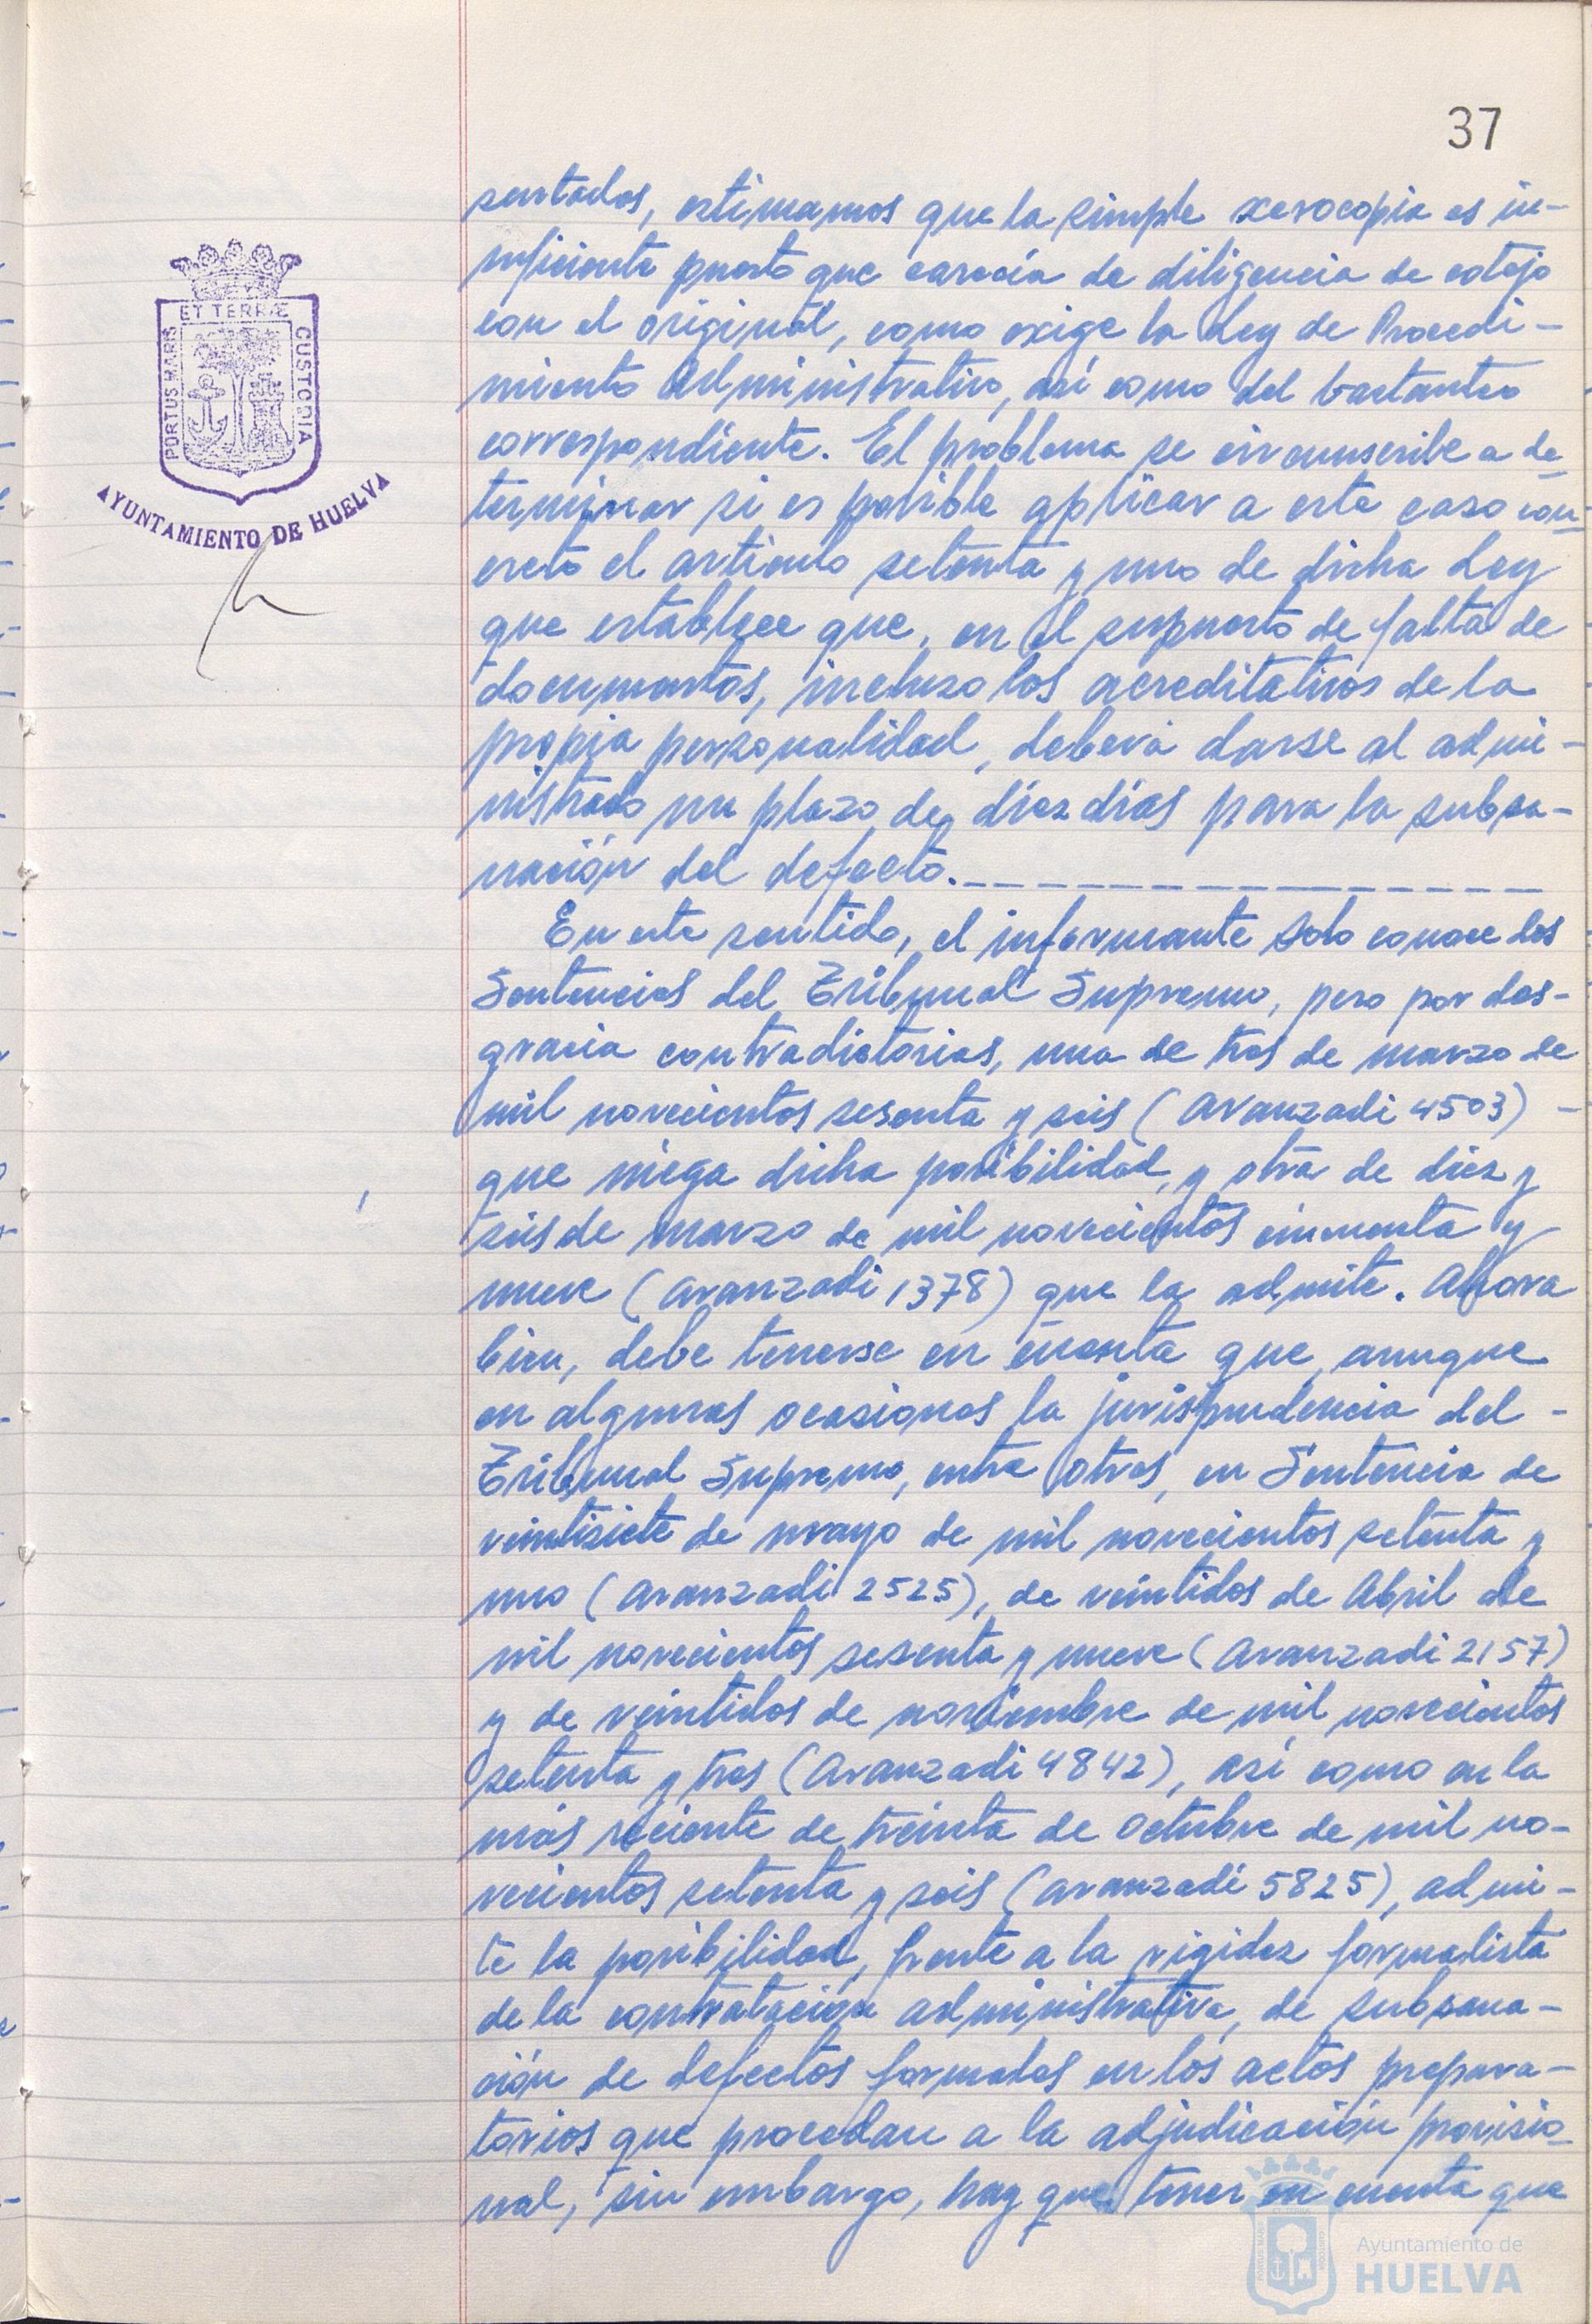 37
ET TERRÆ
PORTUS MARIS
CUSTODIA
AYUNTAMIENTO DE HUELVA
sentados, estimamos que la simple xerocopia es in-
suficiente puesto que carecía de diligencia de cotejo
con el original, como exige la Ley de Procedi-
miento Administrativo, así como del bastanteo
correspondiente. El problema se circunscribe a de
terminar si es posible aplicar a este caso con-
creto el artículo setenta y uno de dicha Ley
que establece que, en el supuesto de falta de
documentos, incluso los acreditativos de la
propia personalidad, deberá darse al admi-
nistrado un plazo de diez días para la subsa-
nación del defecto.
En este sentido, el informante solo conoce dos
Sentencias del Tribunal Supremo, pero por des-
gracia contradictorias, una de tres de marzo de
mil novecientos sesenta y seis (Aranzadi 4503) -
que niega dicha posibilidad, y otra de diez y
seis de marzo de mil novecientos cincuenta y
nueve (Aranzadi 1378) que la admite. Ahora
bien, debe tenerse en cuenta que, aunque
en algunas ocasiones la jurisprudencia del -
Tribunal Supremo, entre otras, en Sentencia de
veintisiete de mayo de mil novecientos setenta y
uno (Aranzadi 2525), de veintidos de Abril de
mil novecientos sesenta y nueve (Aranzadi 2157)
y de veintidos de noviembre de mil novecientos
setenta y tres (Aranzadi 4842), así como en la
más reciente de treinta de Octubre de mil no-
vecientos setenta y seis (Aranzadi 5825), admi-
te la posibilidad, frente a la rigidez formalista
de la contratación administrativa, de subsana-
ción de defectos formales en los actos prepara-
torios que procedan a la adjudicación provisio-
nal, sin embargo, hay que tener en cuenta que
Ayuntamiento de
HUELVA